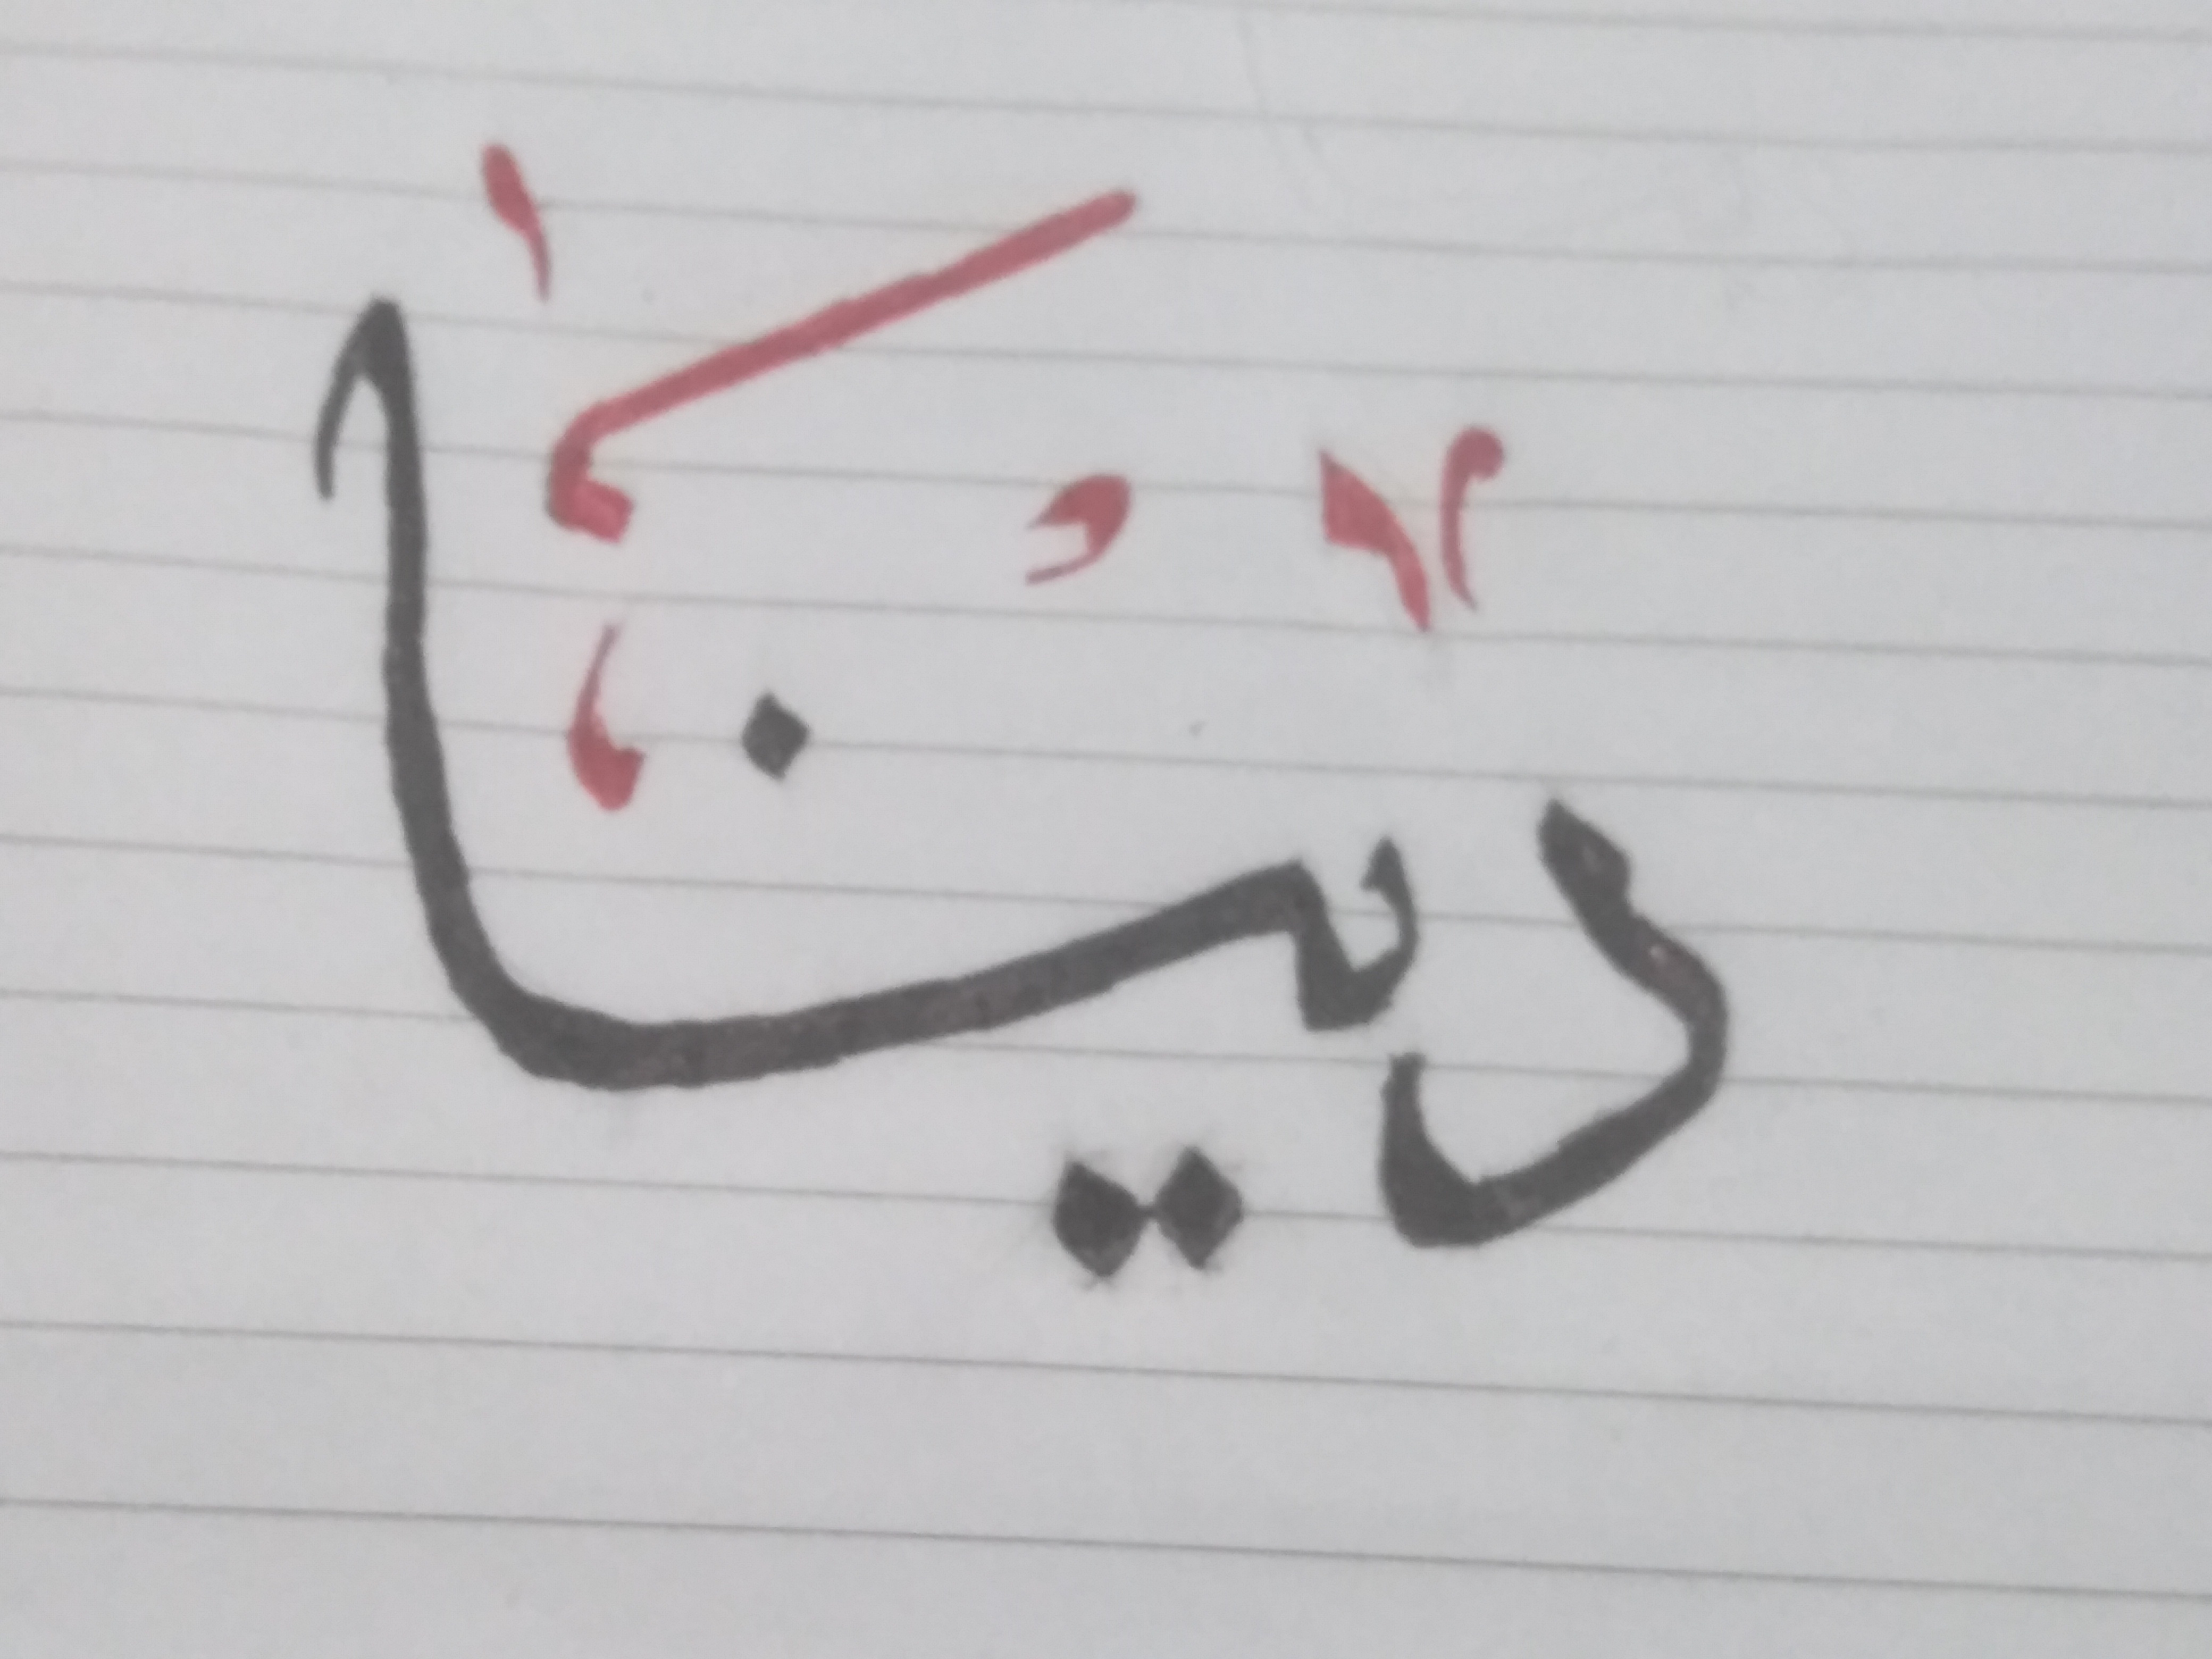 دينا